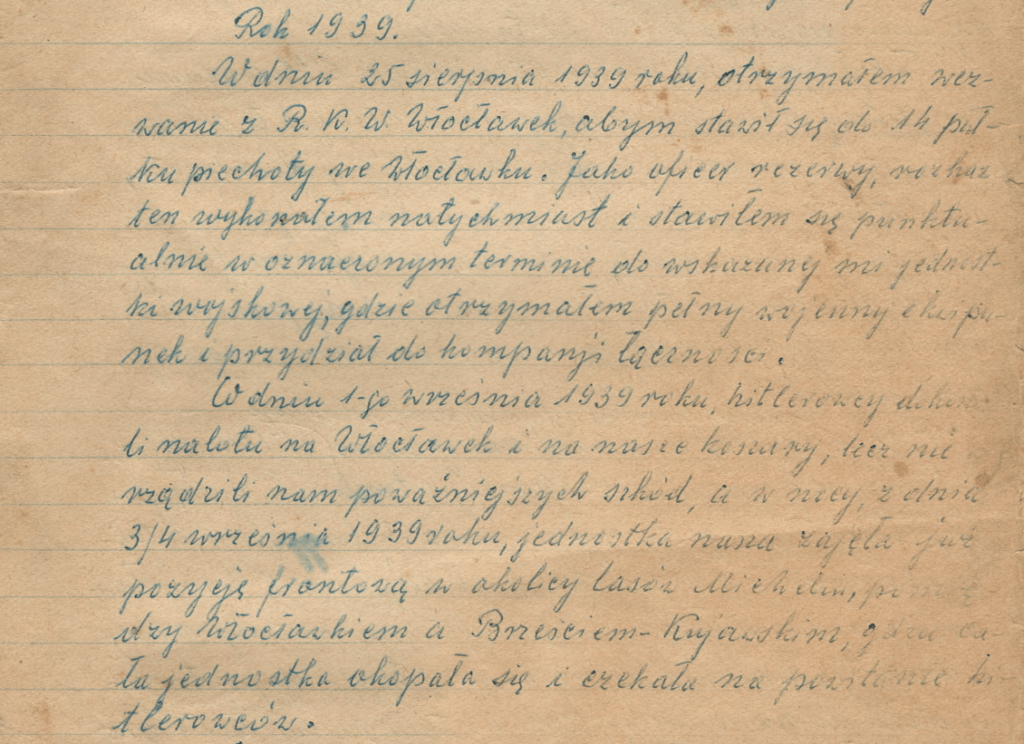 Rok 1939.
W dniu 25 sierpnia 1939 roku, otrzymałem wez-
wanie z R. K. W. Włocławek, abym stawił się do 14 puł-
ku piechoty we Włocławku. Jako oficer rezerwy, rozkaz
ten wykonałem natychmiast i stawiłem się punktu-
alnie w oznaczonym terminie do wskazanej mi jednost-
ki wojskowej, gdzie otrzymałem pełny wojenny ekwipu-
nek i przydział do kompanji łączności.
W dniu 1-go września 1939 roku, hitlerowcy dokona-
li nalotu na Włocławek i na nasze koszary, lecz nie
rządzili nam poważniejszych szkód, a w nocy, z dnia
3/4 września 1939 roku, jednostka nasza zajęła już
pozycję frontową w okolicy lasów Michelin, pomię-
dzy Włocławkiem a Brześciem-Kujawskim, gdzie ca-
ła jednostka okopała się i czekała na powitanie hi-
tlerowców.